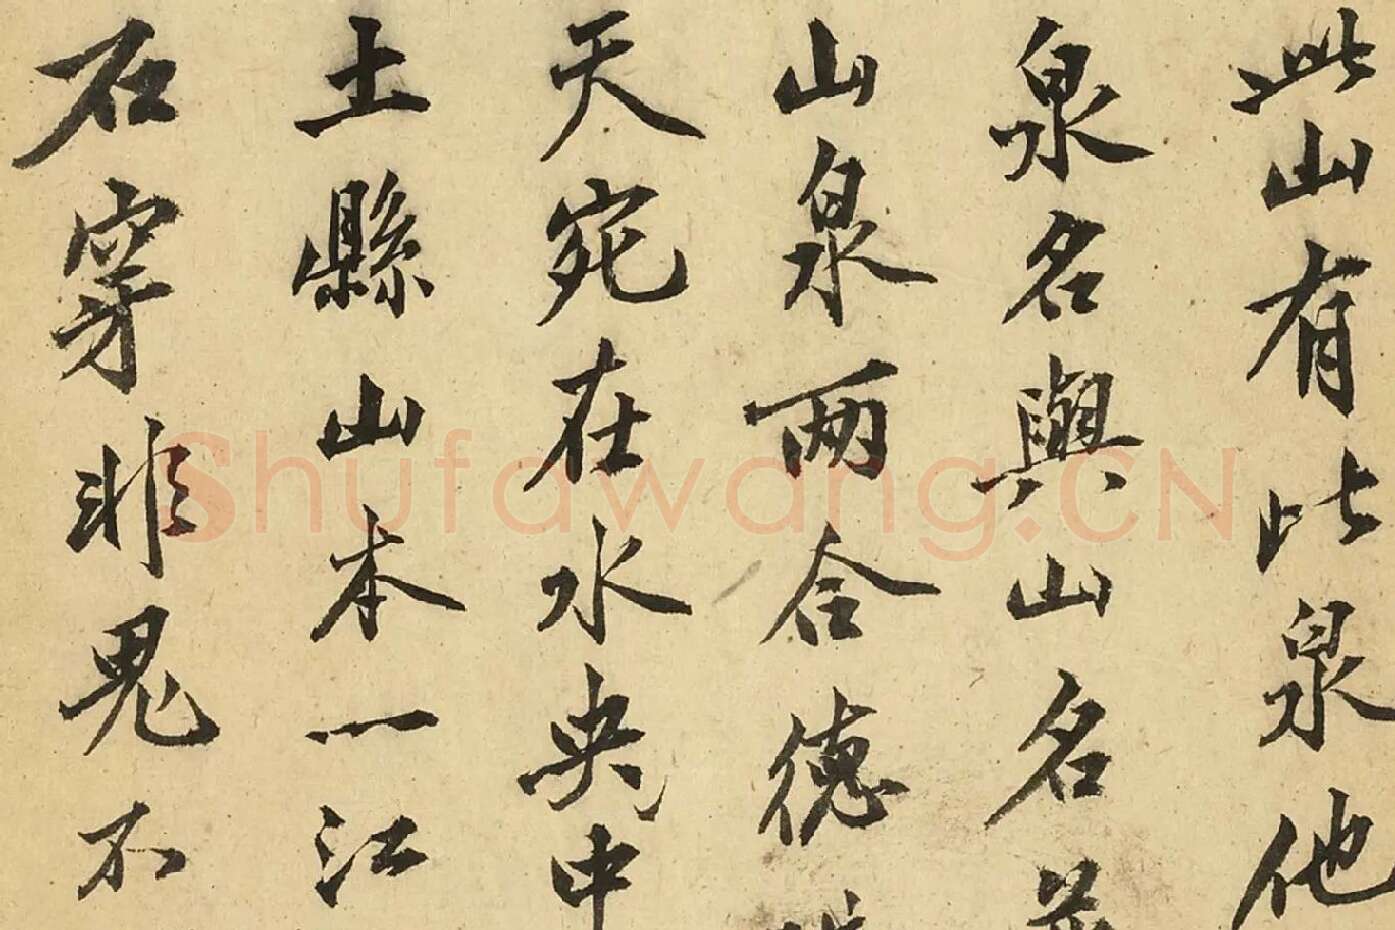 此山有此泉他
泉名與山名
山泉兩合德
天宛在水央中
土縣山本一江
石穿非鬼不
Shufawang.CN